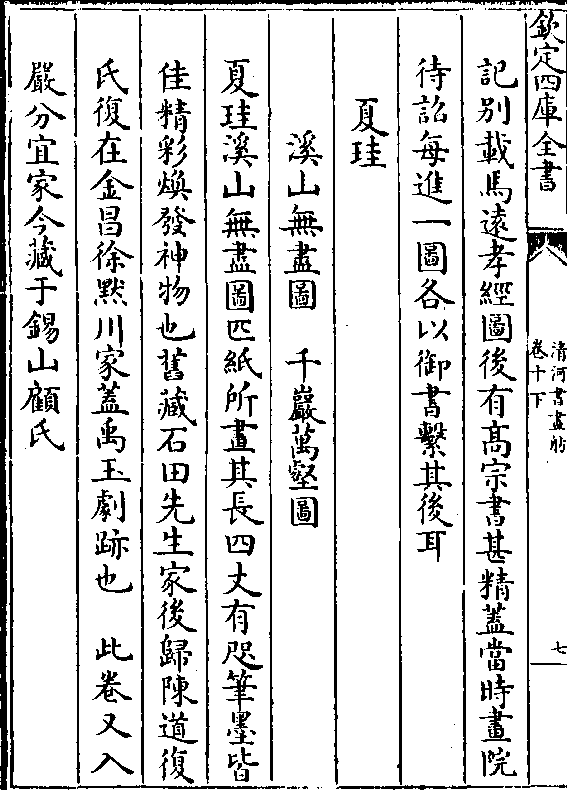 欽定四庫全書
清河書畫舫
卷十下
七
記別載馬遠孝經圖後有髙宗書甚精蓋當時畫院
待詔每進一圖各以御書繫其後耳
夏珪
溪山無盡圖　千巖萬壑圖
夏珪溪山無盡圖匹紙所畫其長四丈有咫筆墨皆
佳精彩煥發神物也舊藏石田先生家後歸陳道復
氏復在金昌徐黙川家蓋禹玉劇跡也　此卷又入
嚴分宜家今藏于錫山顧氏